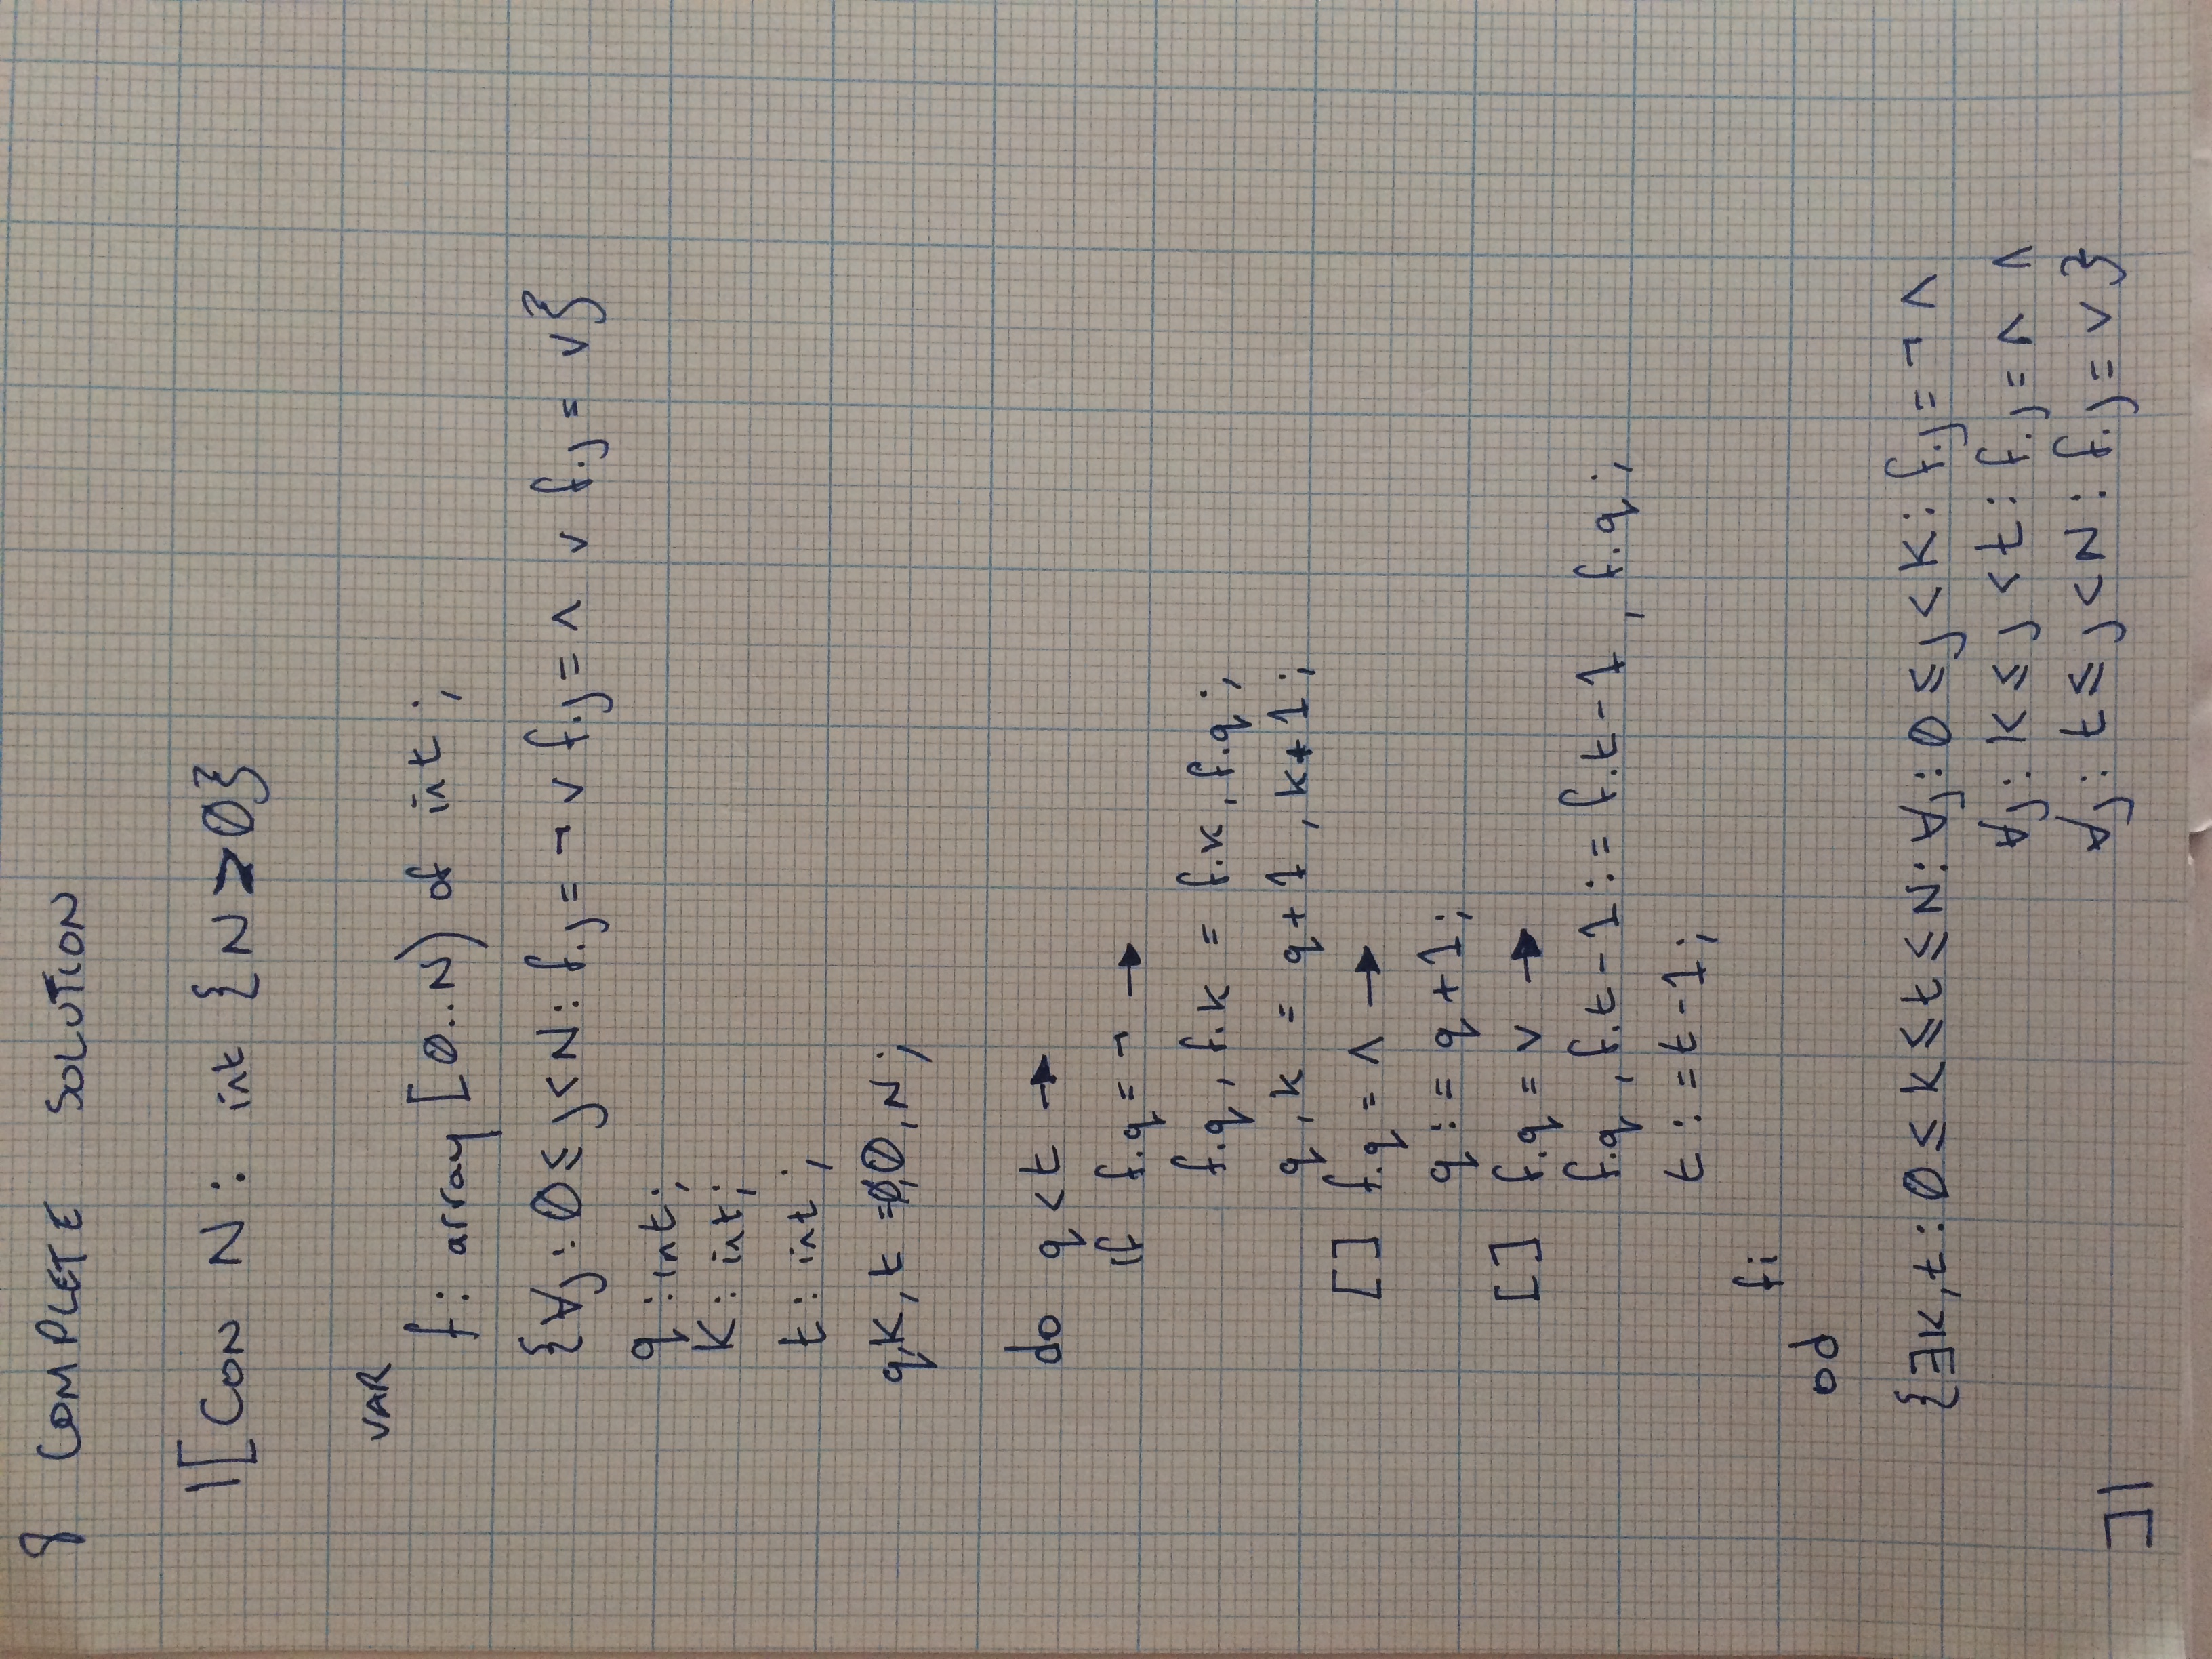 8 COMPLETE SOLUTION
|[CON N: int {N≥0}
VAR
f: array [0..N) of int;
{∀j: 0≤j<N: f.j=¬ ∨ f.j=∧ ∨ f.j= ∨}
q:int;
K: int;
t: int;
q,K, t =0,0,N;
do q<t →
if f.q = ¬ →
f.q, f.k = f.k, f.q;
q, k = q+1, k+1;
[] f.q = ∧ →
q:= q+1;
[] f.q = ∨ →
f.q, f.t-1 := f.t-1, f.q;
t:=t-1;
fi
od
{∃K,t: 0≤k≤t≤N: ∀j: 0≤j<K: f.j=¬ ∧
∀j: K≤j<t: f.j=∧ ∧
∀j: t≤j<N: f.j= ∨}
]|